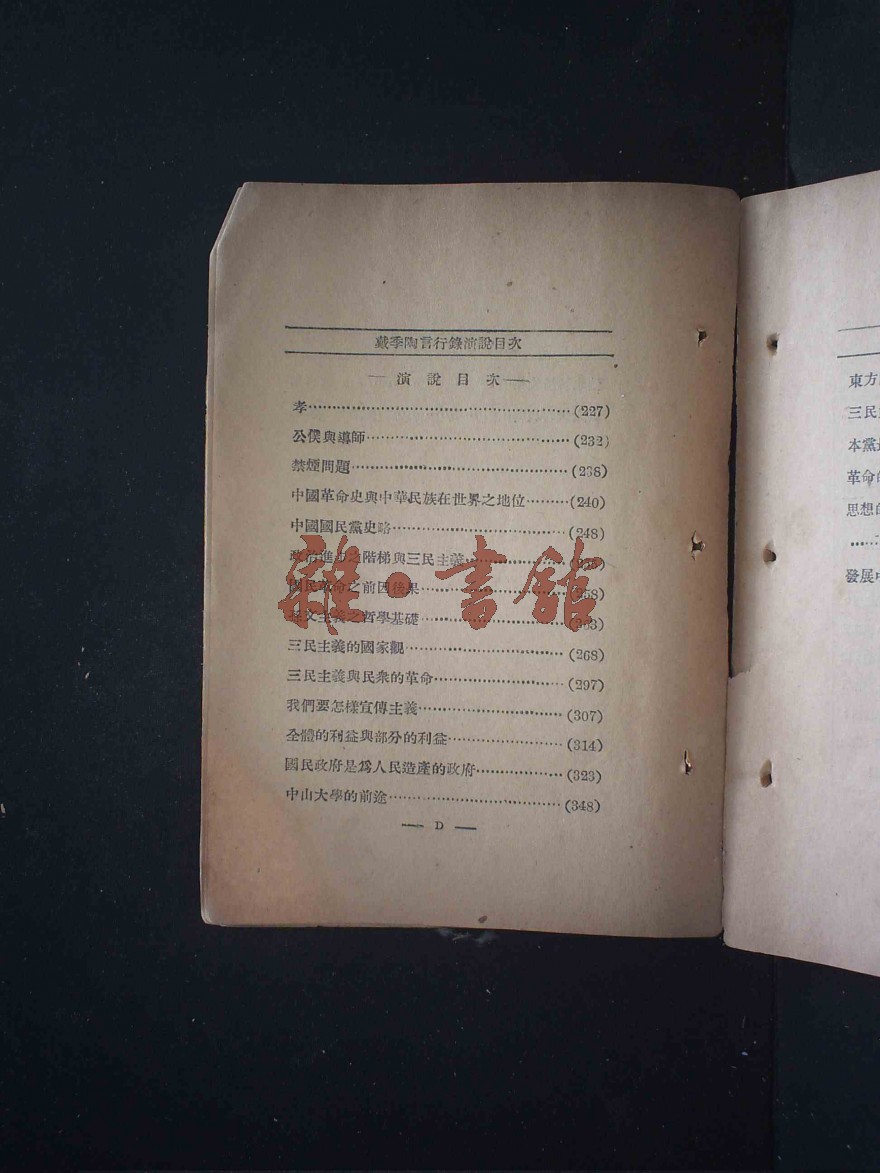 戴季陶言行錄演說目次
— 演說目次 —
孝……(227)
公僕與導師……(232)
禁煙問題……(238)
中國革命史與中華民族在世界之地位……(240)
中國國民黨史略……(248)
政治進步之階梯與三民主義……
國民革命之前因後果……
孫文主義之哲學基礎……
三民主義的國家觀……(268)
三民主義與民衆的革命……(297)
我們要怎樣宣傳主義……(307)
全體的利益與部分的利益……(314)
國民政府是爲人民造產的政府……(323)
中山大學的前途……(348)
— D —
雜·書館
東方
三民
本黨
革命
思想
發展